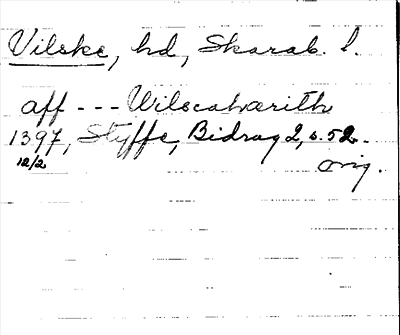 Vilske, hd, Skarab. l.
aff --- Wilscahærith
1397, Styffe, Bidrag 2, s. 52.
12/2 orig.